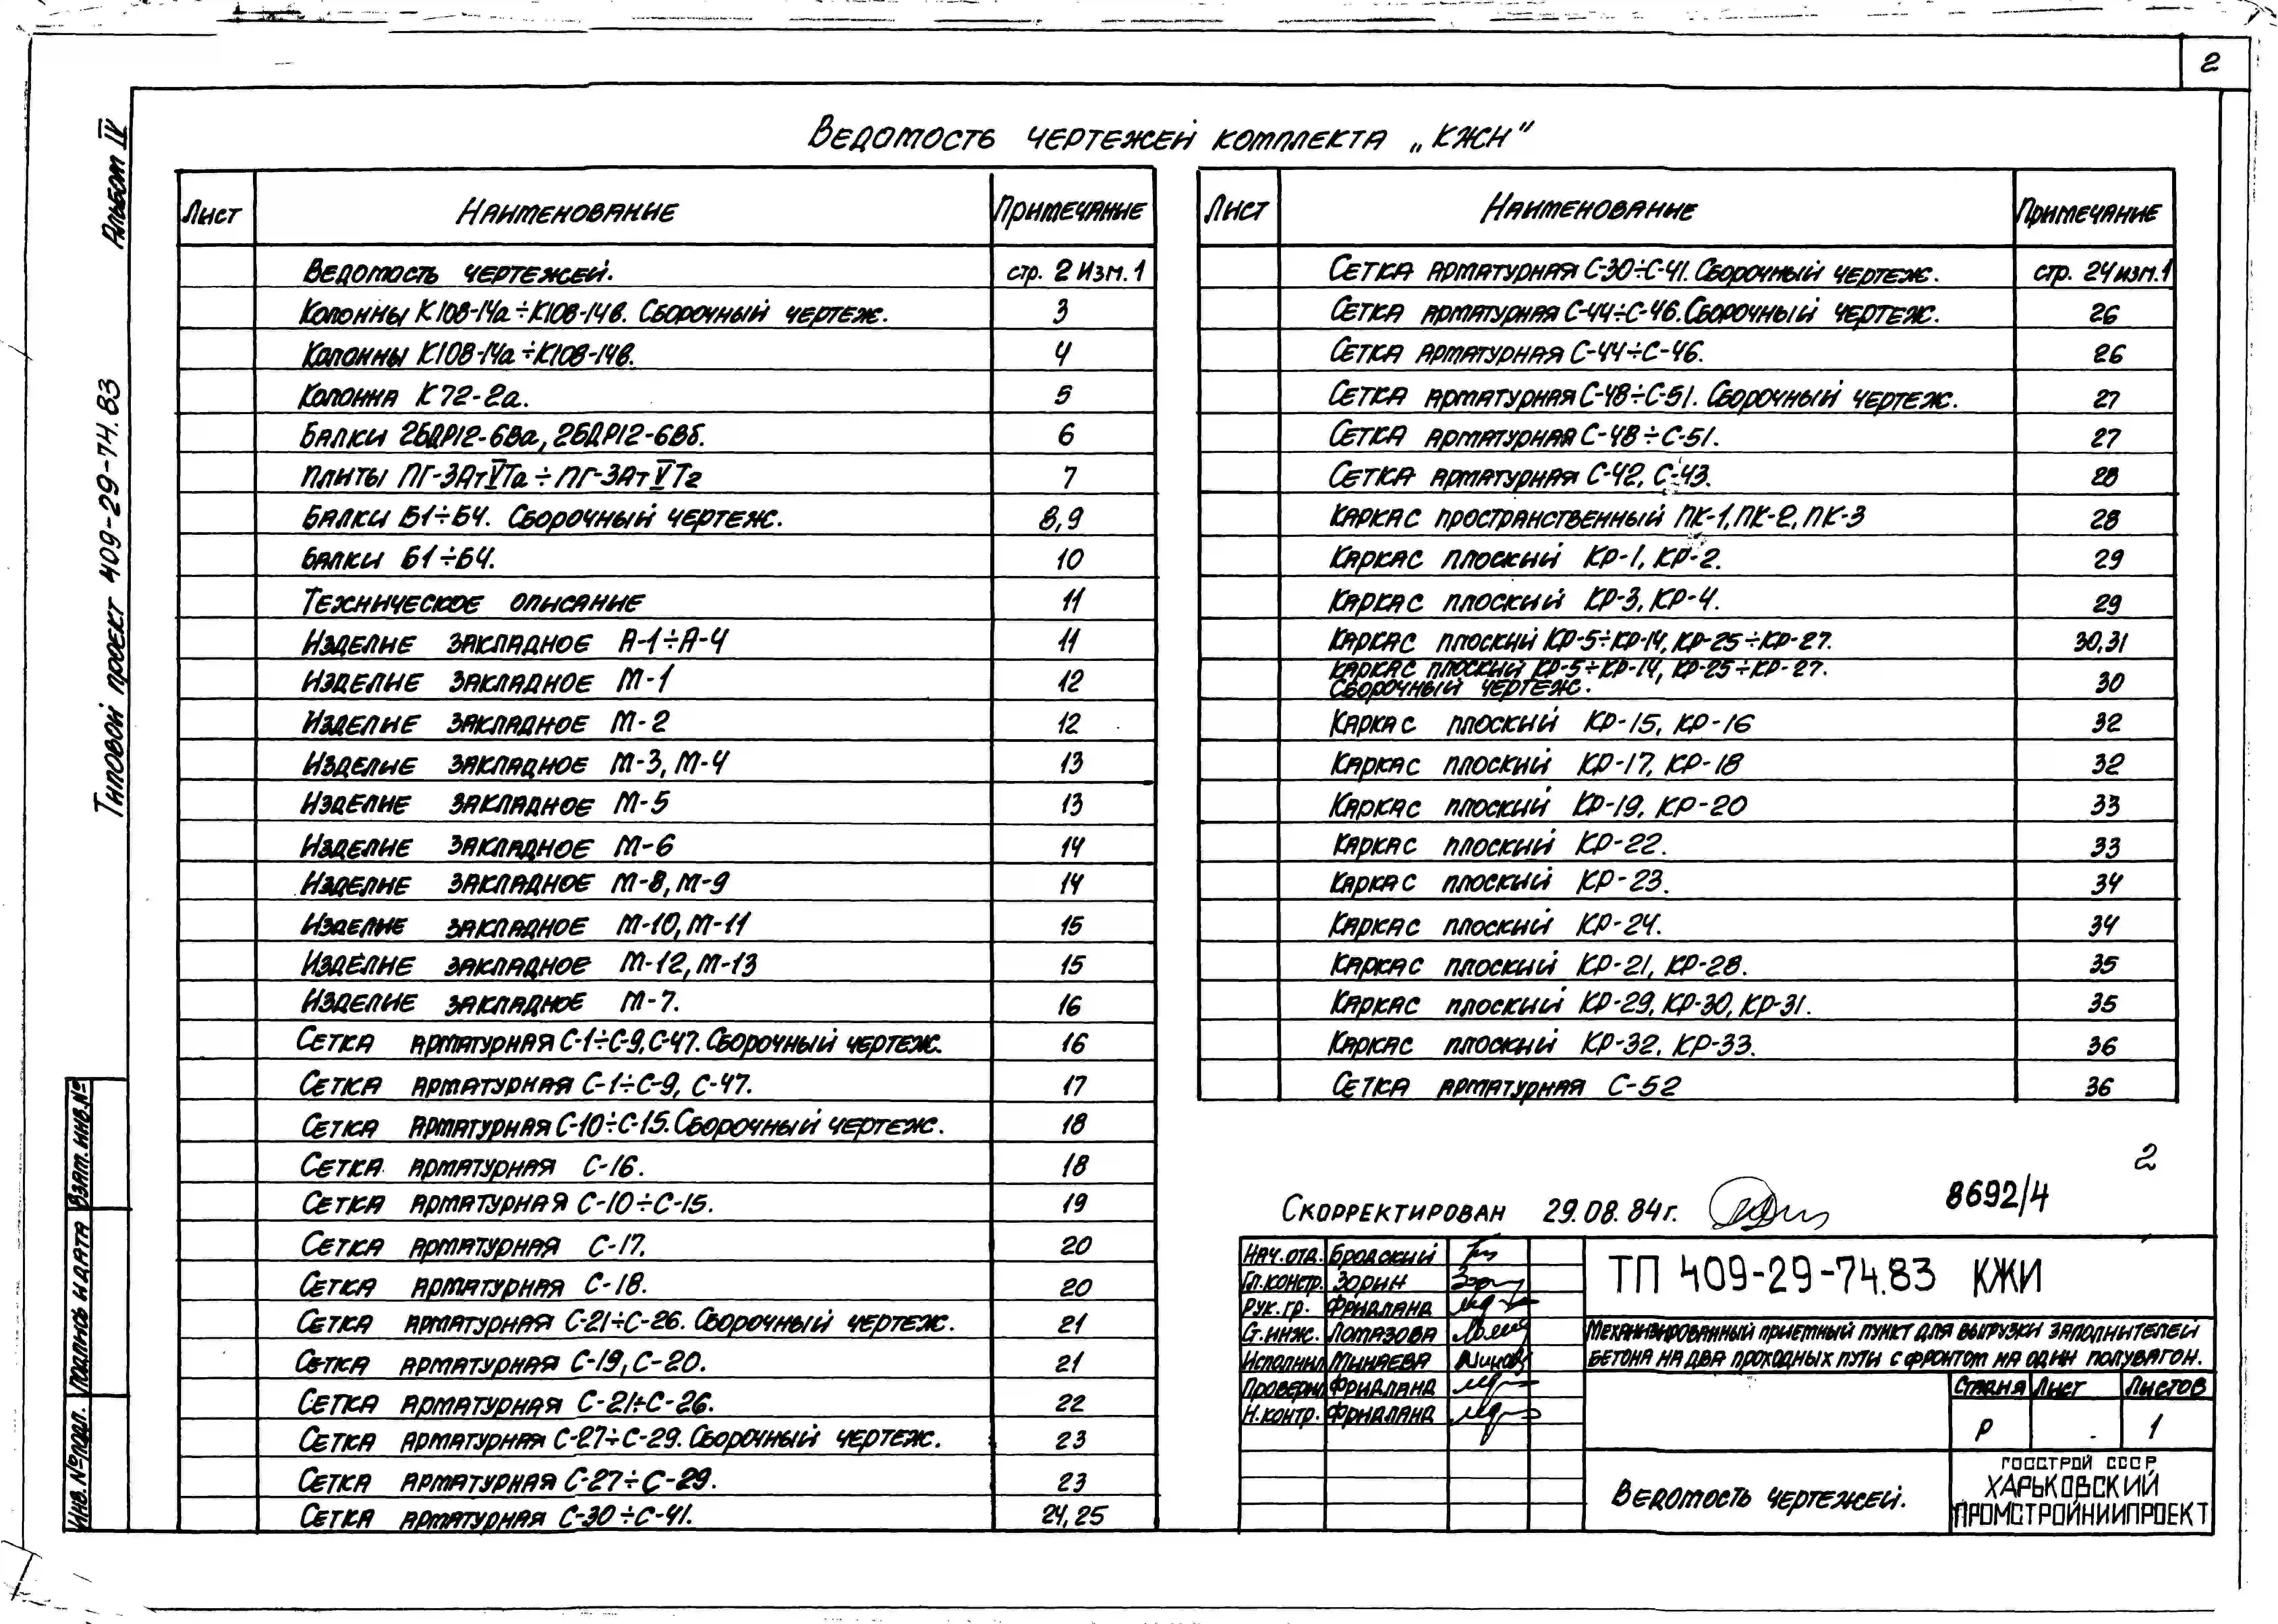 2
Альбом IV
Типовой проект 409-29-74.83
Взам. инв. №
Подпись и дата
Инв. № подл.
Ведомость чертежей комплекта „КЖИ"
Лист Наименование Примечание
Ведомость чертежей. стр. 2 Изм. 1
Колонны К108-14а÷К108-14в. Сборочный чертеж. 3
Колонны К108-14а÷К108-14в. 4
Колонна К72-2а. 5
Балки 2БДР12-6Ва, 2БДР12-6Вб. 6
Плиты ПГ-3АтVТа÷ПГ-3АтVТг 7
Балки Б1÷Б4. Сборочный чертеж. 8,9
Балки Б1÷Б4. 10
Техническое описание 11
Изделие закладное А-1÷А-4 11
Изделие закладное М-1 12
Изделие закладное М-2 12
Изделие закладное М-3, М-4 13
Изделие закладное М-5 13
Изделие закладное М-6 14
Изделие закладное М-8, М-9 14
Изделие закладное М-10, М-11 15
Изделие закладное М-12, М-13 15
Изделие закладное М-7. 16
Сетка арматурная С-1÷С-9, С-47. Сборочный чертеж. 16
Сетка арматурная С-1÷С-9, С-47. 17
Сетка арматурная С-10÷С-15. Сборочный чертеж. 18
Сетка арматурная С-16. 18
Сетка арматурная С-10÷С-15. 19
Сетка арматурная С-17. 20
Сетка арматурная С-18. 20
Сетка арматурная С-21÷С-26. Сборочный чертеж. 21
Сетка арматурная С-19, С-20. 21
Сетка арматурная С-21÷С-26. 22
Сетка арматурная С-27÷С-29. Сборочный чертеж. 23
Сетка арматурная С-27÷С-29. 23
Сетка арматурная С-30÷С-41. 24,25
Лист Наименование Примечание
Сетка арматурная С-30÷С-41. Сборочный чертеж. стр. 24 изм. 1
Сетка арматурная С-44÷С-46. Сборочный чертеж. 26
Сетка арматурная С-44÷С-46. 26
Сетка арматурная С-48÷С-51. Сборочный чертеж. 27
Сетка арматурная С-48÷С-51. 27
Сетка арматурная С-42, С-43. 28
Каркас пространственный ПК-1, ПК-2, ПК-3 28
Каркас плоский КР-1, КР-2. 29
Каркас плоский КР-3, КР-4. 29
Каркас плоский КР-5÷КР-14, КР-25÷КР-27. 30,31
Каркас плоский КР-5÷КР-14, КР-25÷КР-27.
Сборочный чертеж. 30
Каркас плоский КР-15, КР-16 32
Каркас плоский КР-17, КР-18 32
Каркас плоский КР-19, КР-20 33
Каркас плоский КР-22. 33
Каркас плоский КР-23. 34
Каркас плоский КР-24. 34
Каркас плоский КР-21, КР-28. 35
Каркас плоский КР-29, КР-30, КР-31. 35
Каркас плоский КР-32, КР-33. 36
Сетка арматурная С-52 36
2
Скорректирован 29.08.84г. 8692/4
Нач. отд. Бродский
Гл. констр. Зорин
Рук. гр. Фридланд
Ст. инж. Ломазова
Исполнил Минаева
Проверил Фридланд
Н. контр. Фридланд
ТП 409-29-74.83 КЖИ
Механизированный приемный пункт для выгрузки заполнителей
бетона на два проходных пути с фронтом на один полувагон.
Стадия Лист Листов
Р 1
Ведомость чертежей.
ГОССТРОЙ СССР
ХАРЬКОВСКИЙ
ПРОМСТРОЙНИИПРОЕКТ